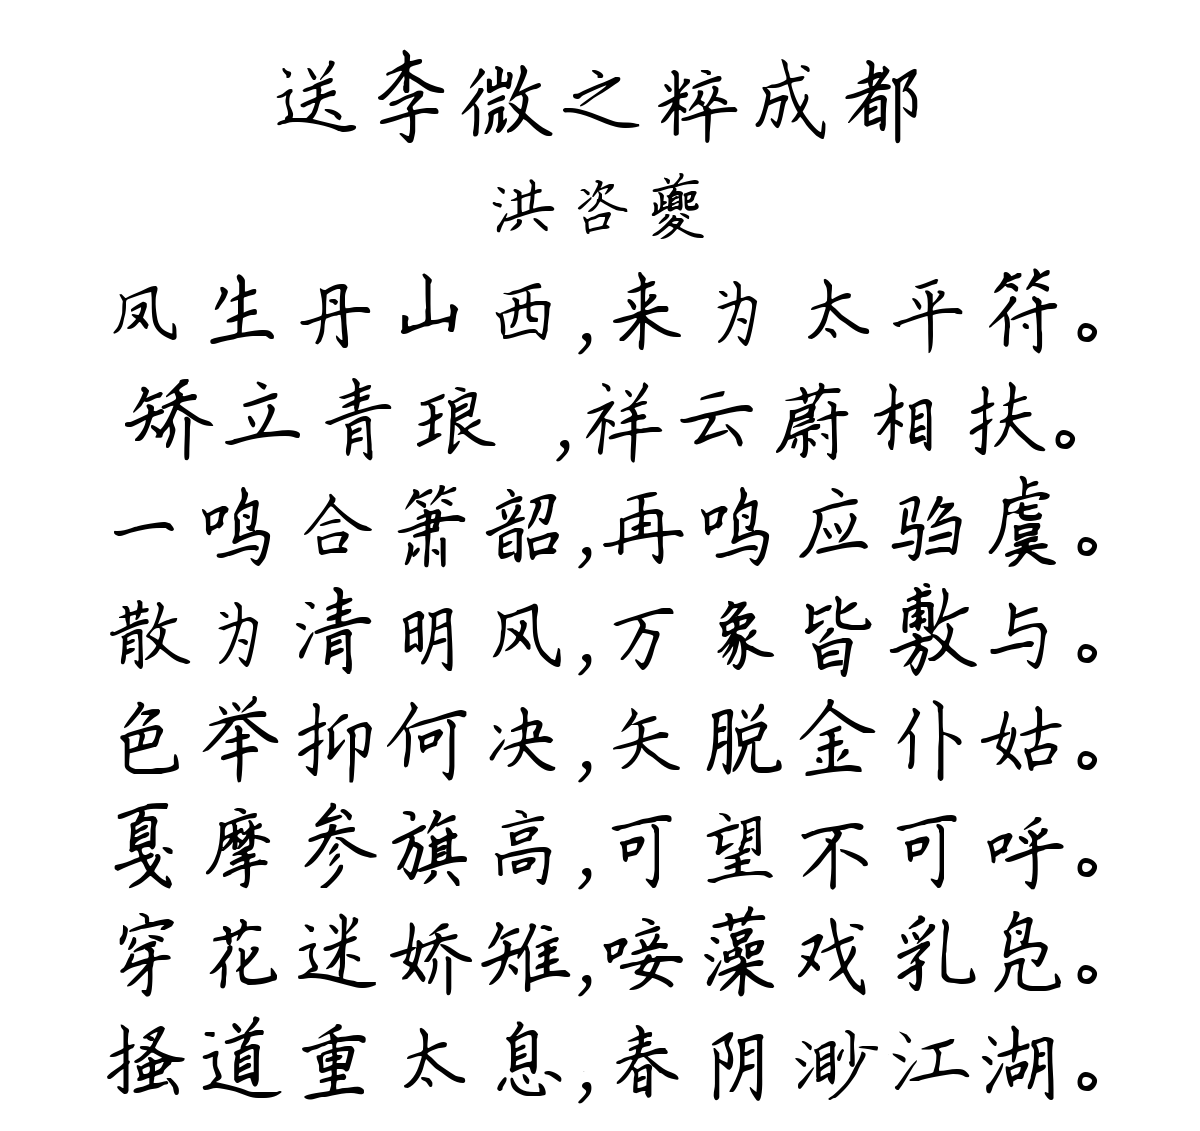 送李微之粹成都
洪咨夔
凤生丹山西,来为太平符。
矫立青琅 ,祥云蔚相扶。
一鸣合箫韶,再鸣应驺虞。
散为清明风,万象皆敷与。
色举抑何决,矢脱金仆姑。
戛摩参旗高,可望不可呼。
穿花迷娇雉,唼藻戏乳凫。
搔道重太息,春阴渺江湖。